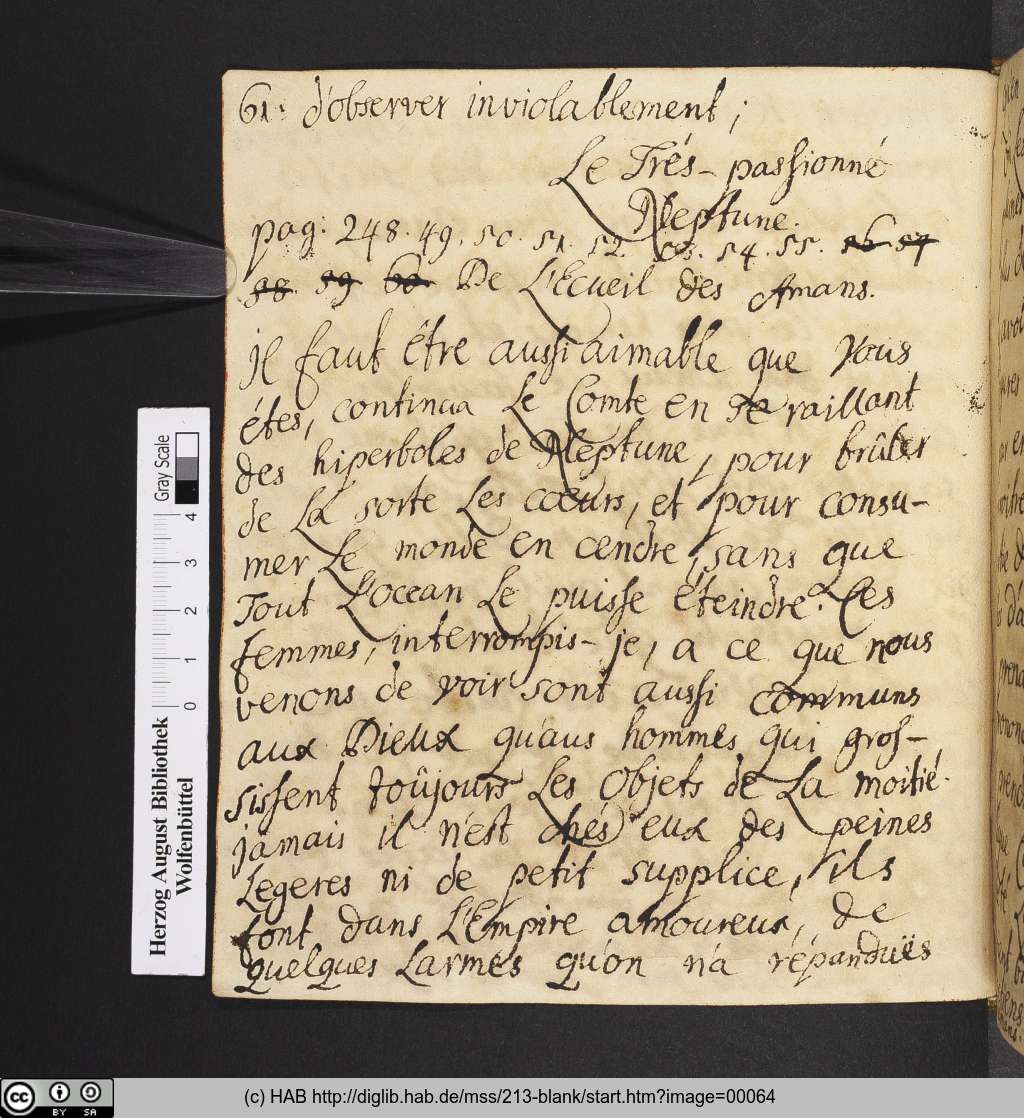 61: d'observer inviolablement;
Le Trés-passionné
Neptune.
pag: 248. 49. 50. 51. 52. 53. 54. 55. 56. 57
58. 59 60. De L'Ecueil des Amans.
il faut être aussi aimable que vous
étes, continua Le Comte en se raillant
des hiperboles de Neptune, pour brûler
de La sorte Les coeurs, et pour consu-
mer Le monde en cendre, sans que
Tout L'ocean Le puisse éteindre. Ces
femmes, interrompis-je, a ce que nous
venons de voir sont aussi communs
aux Dieux qu'aus hommes qui gros-
sissent toûjours Les Objets de La moitié.
jamais il n'est chés eux des peines
Legeres ni de petit supplice, ils
font dans L'Empire amoureux, de
quelques Larmes qu'on n'a répanduës
Herzog August Bibliothek
Wolfenbüttel
0 1 2 3 4
Gray Scale
cc BY SA
(c) HAB http://diglib.hab.de/mss/213-blank/start.htm?image=00064